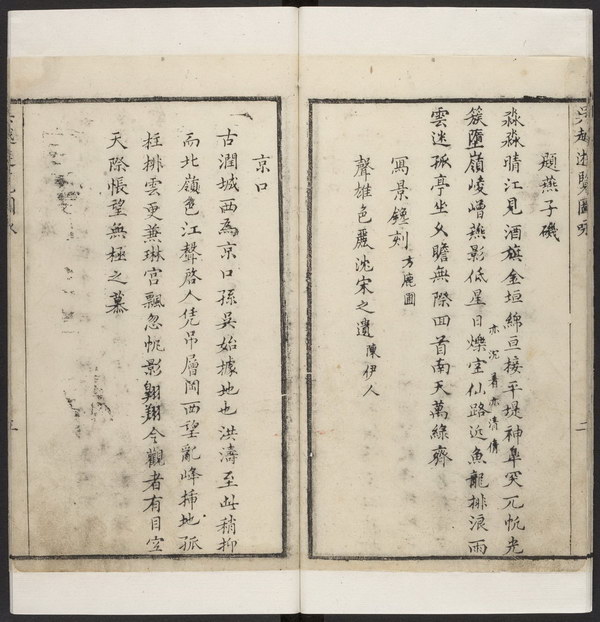 題燕子磯
淼淼晴江見酒旗金垣綿亘接平堤神皐突兀帆光
簇墮嶺崚嶒燕影低星日爍空仙路近魚龍排浪雨
雲迷孤亭坐久瞻無際回首南天萬綠齊
寫景鑱刻 方鹿圃
聲雄色麗沈宋之遺 陳伊人
二
京口
古潤城西為京口孫吳始據地也洪濤至此稍抑
而北嶺色江聲啓人凭吊層闕西望亂峰插地孤
柱排雲更兼琳宮飄忽帆影翱翔令觀者有目空
天際悵望無極之慕